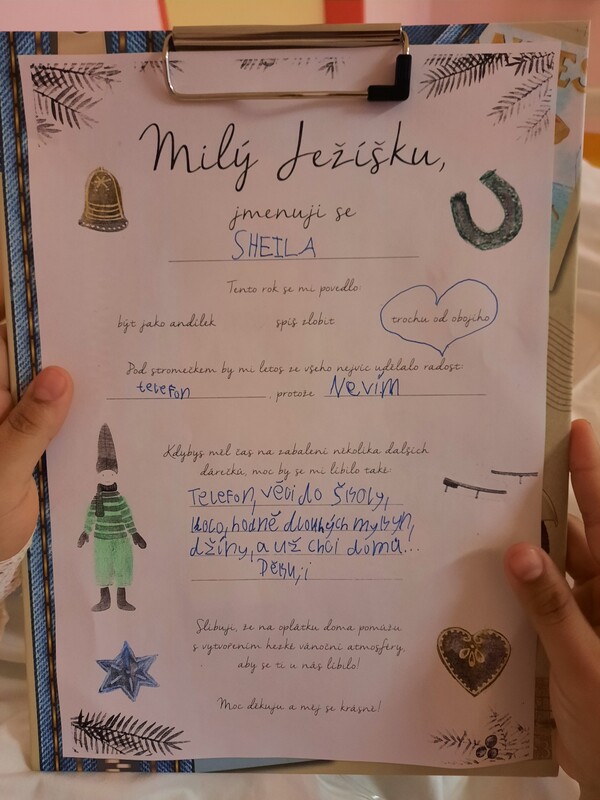 Milý Ježíšku,
jmenuji se
SHEILA
Tento rok se mi povedlo:
být jako andílek spíš zlobit trochu od obojího
Pod stromečkem by mi letos ze všeho nejvíc udělalo radost:
telefon, protože Nevím
Kdybys měl čas na zabalení několika dalších
dárečků, moc by se mi líbilo také:
Telefon, věci do školy,
kolo, hodně dlouhých mykyn,
džíny, a už chci domů...
Děkuji
Slibuji, že na oplátku doma pomůžu
s vytvořením hezké vánoční atmosféry,
aby se ti u nás líbilo!
Moc děkuju a měj se krásně!